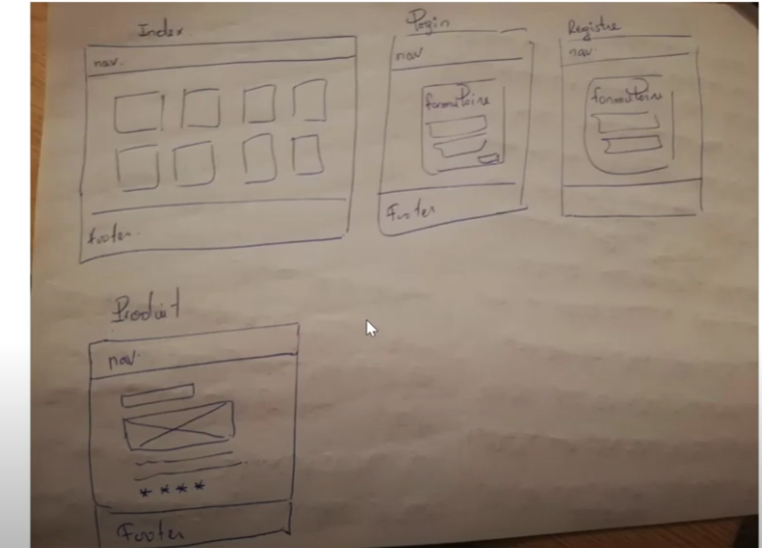 Index
nav.
Footer.
Login
nav
formulaire
Footer
Registre
nav.
formulaire
Produit
nav.
* * * *
Footer